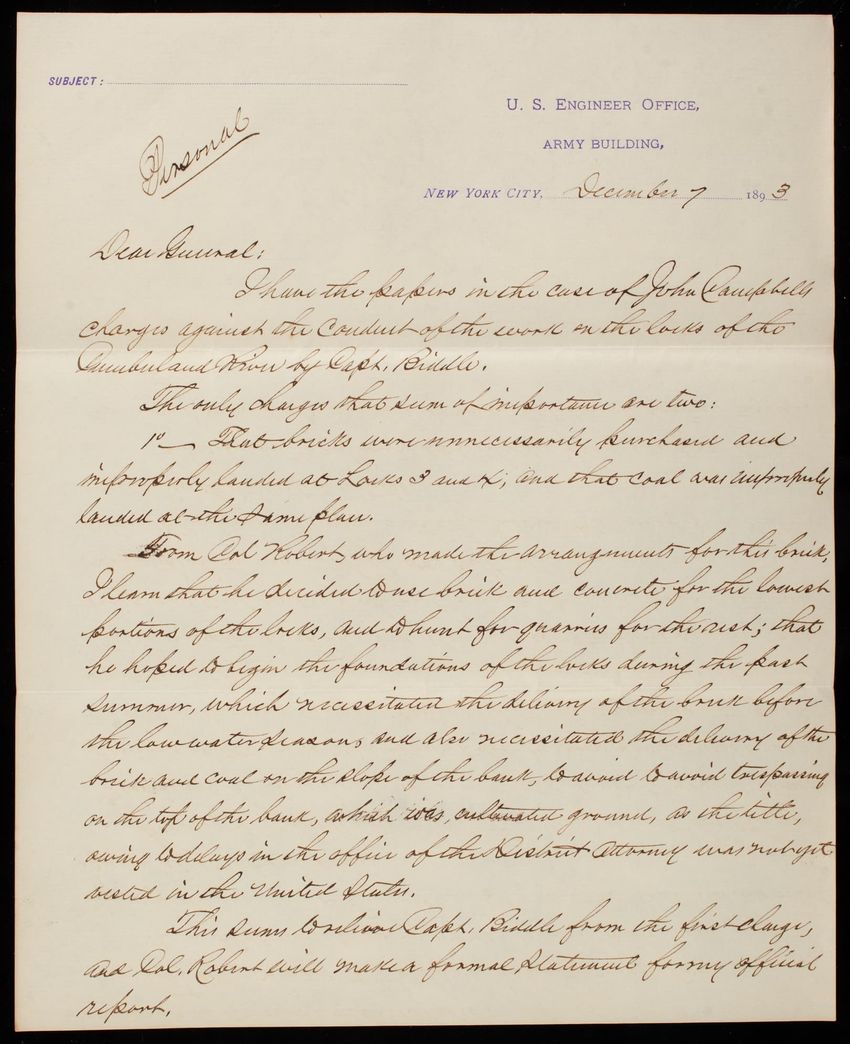 SUBJECT:
Personal
U. S. ENGINEER OFFICE,
ARMY BUILDING,
NEW YORK CITY, December 7 1893
Dear General:
I have the papers in the case of John Campbells
charges against the conduct of the work on the locks of the
Cumberland River by Capt. Biddle.
The only charges that seem of importance are two:
1º— That bricks were unnecessarily purchased and
improperly landed at Locks 3 and 4; and that coal was improperly
landed at the same place.
From Col Robert, who made the arrangements for this brick,
I learn that he decided to use brick and concrete for the lowest
portions of the locks, and to hunt for quarries for the rest; that
he hoped to begin the foundations of the locks during the past
summer, which necessitated the delivery of the brick before
the low water season, and also necessitated the delivery of the
brick and coal on the slope of the bank, to avoid to avoid trespassing
on the top of the bank, which is cultivated ground, as the title,
owing to delays in the office of the District Attorney was not yet
vested in the United States.
This seems to relieve Capt. Biddle from the first charge,
and Col. Robert will make a formal statement for my official
report.